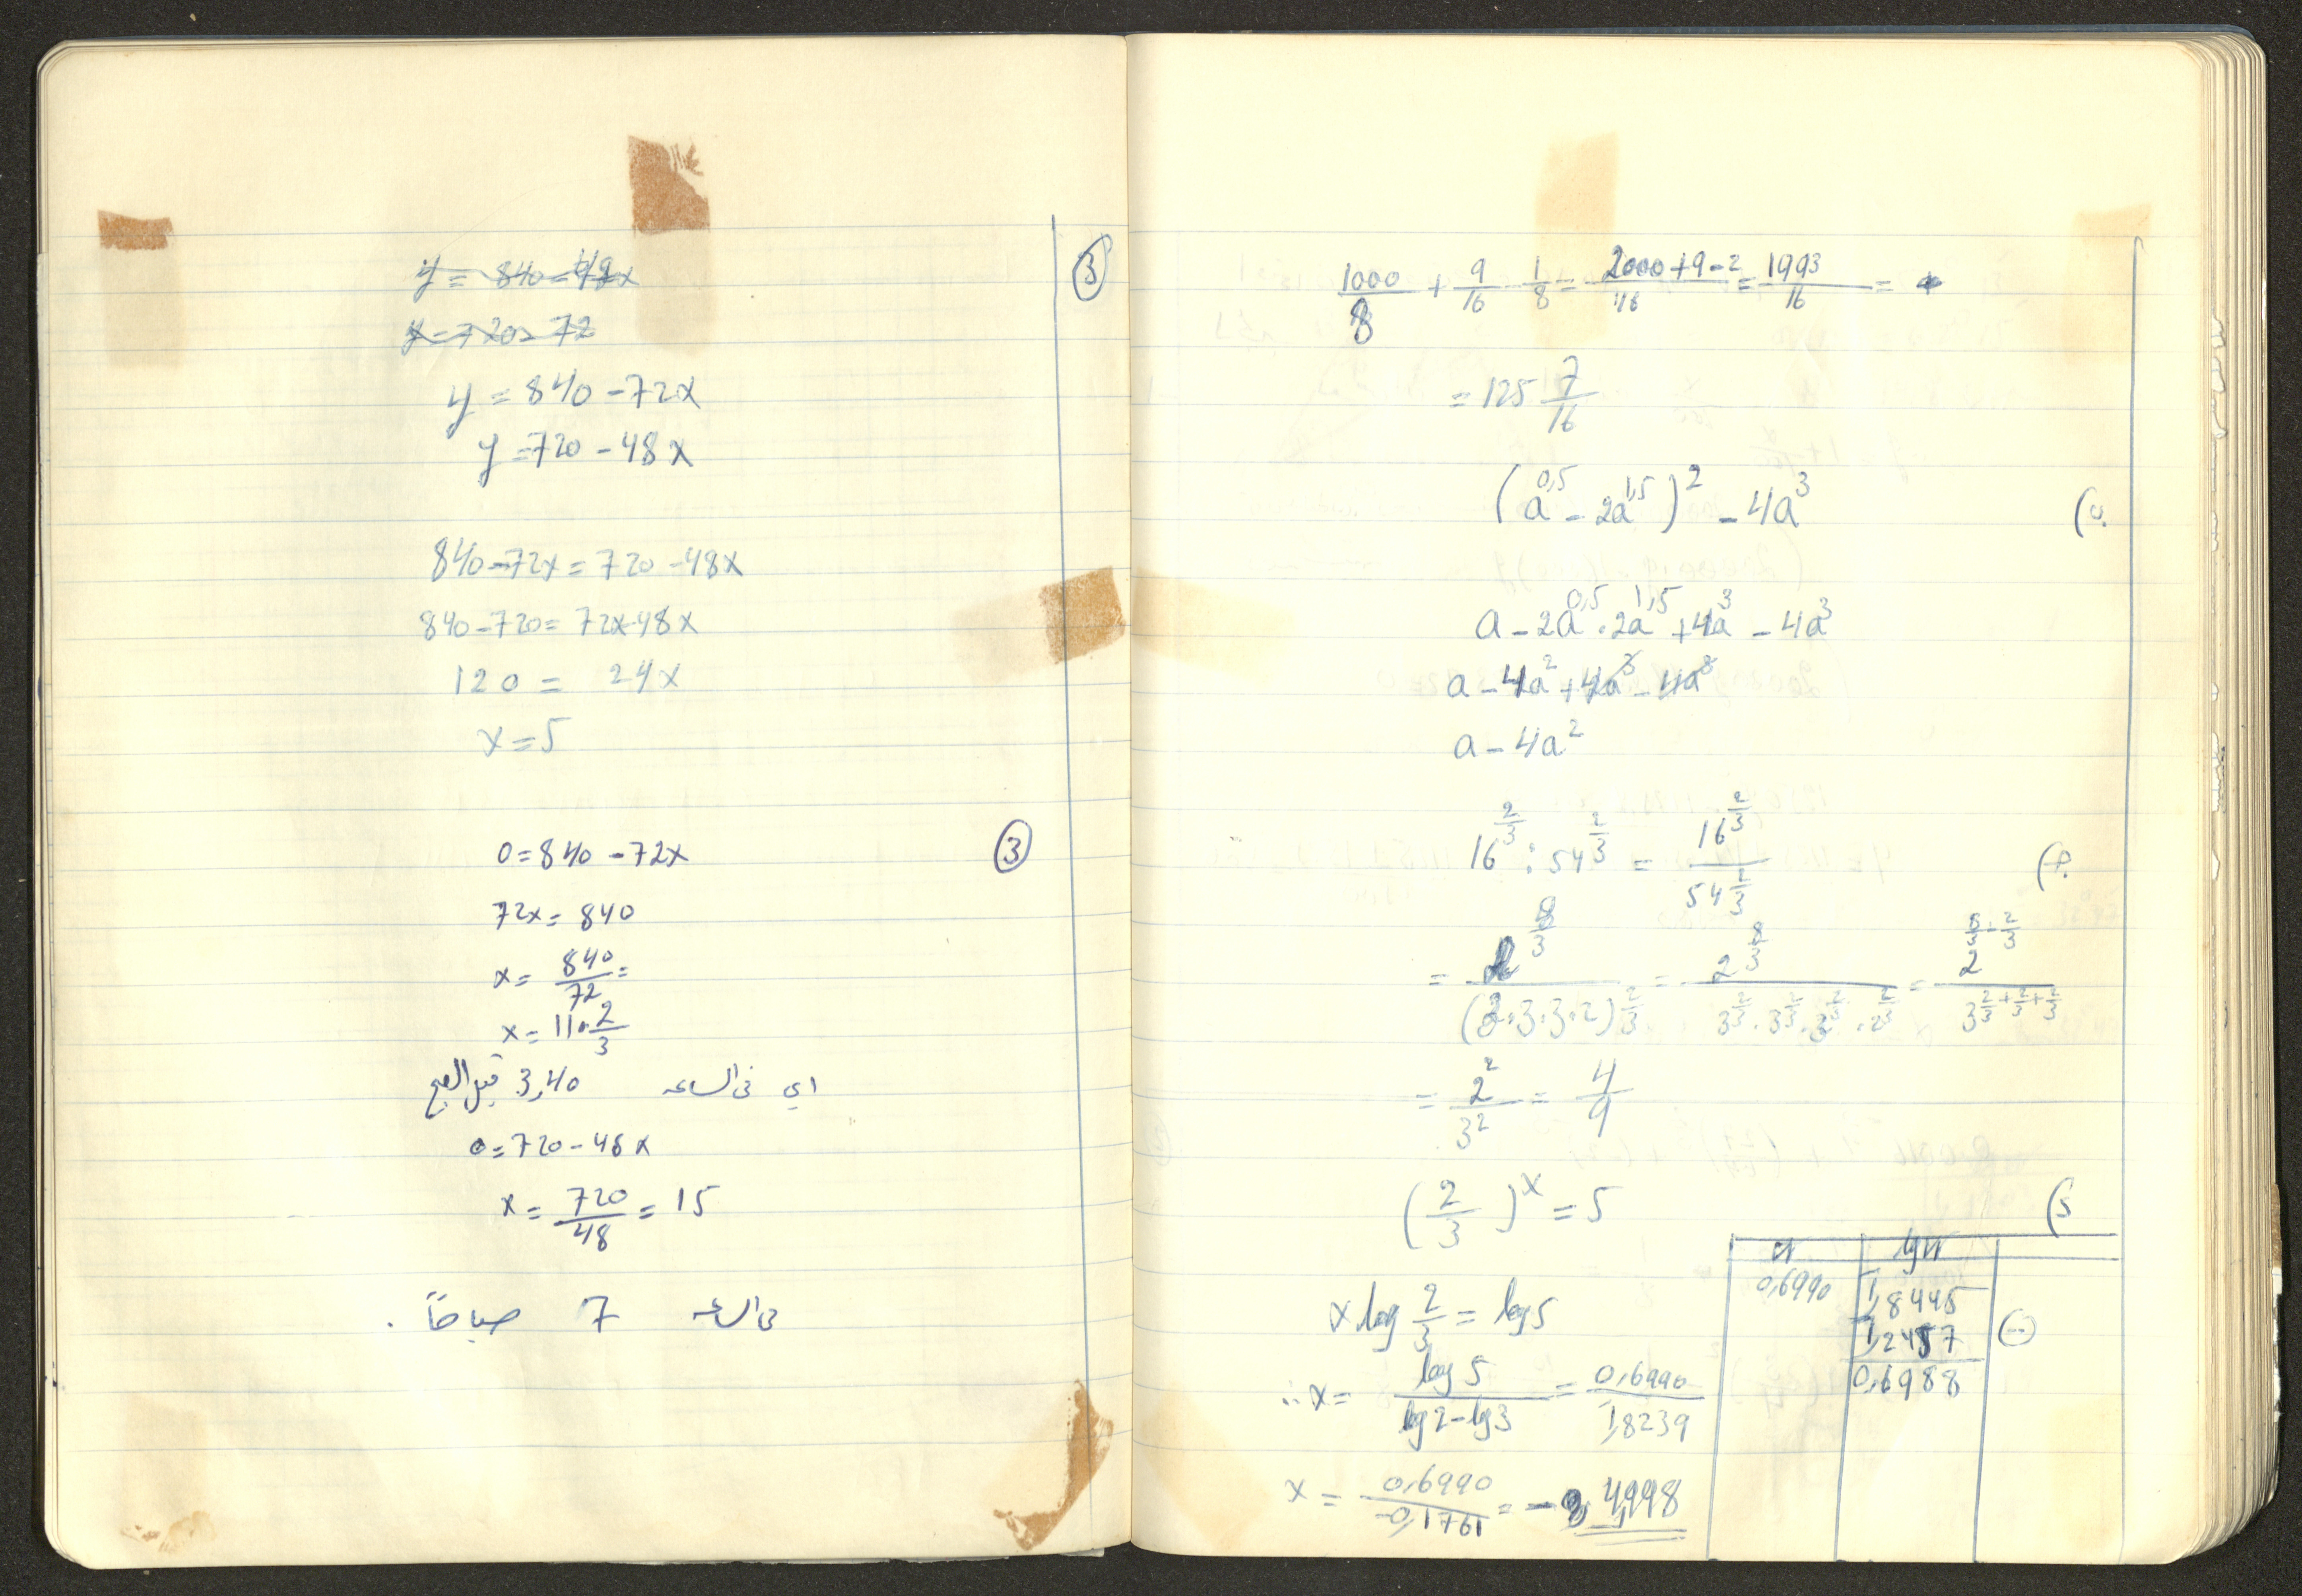 ③
y = 840 - 48x
y = 720 - 72
y = 840 - 72x
y = 720 - 48x
840 - 72x = 720 - 48x
840 - 720 = 72x - 48x
120 = 24x
x = 5
③ 0 = 840 - 72x
72x = 840
x = 840/72 =
x = 11 · 2/3
اي في الساعه 3,40
0 = 720 - 48x
x = 720/48 = 15
في الساعه 7 صباحاً .
1000/8 + 9/16 - 1/8 = 2000+9-2/16 = 1993/16 =
= 125 7/16
ب) (a^0,5 - 2a^1,5)^2 - 4a^3
a - 2a^0,5 · 2a^1,5 + 4a^3 - 4a^3
a - 4a^2 + 4a^3 - 4a^3
a - 4a^2
ج) 16^2/3 : 54^2/3 = 16^2/3 / 54^2/3
= 2^8/3 / (3·3·3·2)^2/3 = 2^8/3 / 3^2/3 · 3^2/3 · 3^2/3 · 2^2/3 = 2^8/3 - 2/3 / 3^2/3+2/3+2/3
= 2^2/3^2 = 4/9
د) (2/3)^x = 5
x log 2/3 = log 5
∴ x = log 5 / lg 2 - lg 3 = 0,6990 / 1,8239
x = 0,6990 / -0,1761 = - 3, 4998
n lg n
0,6990 1,8445
1,2457 (-)
0,6988